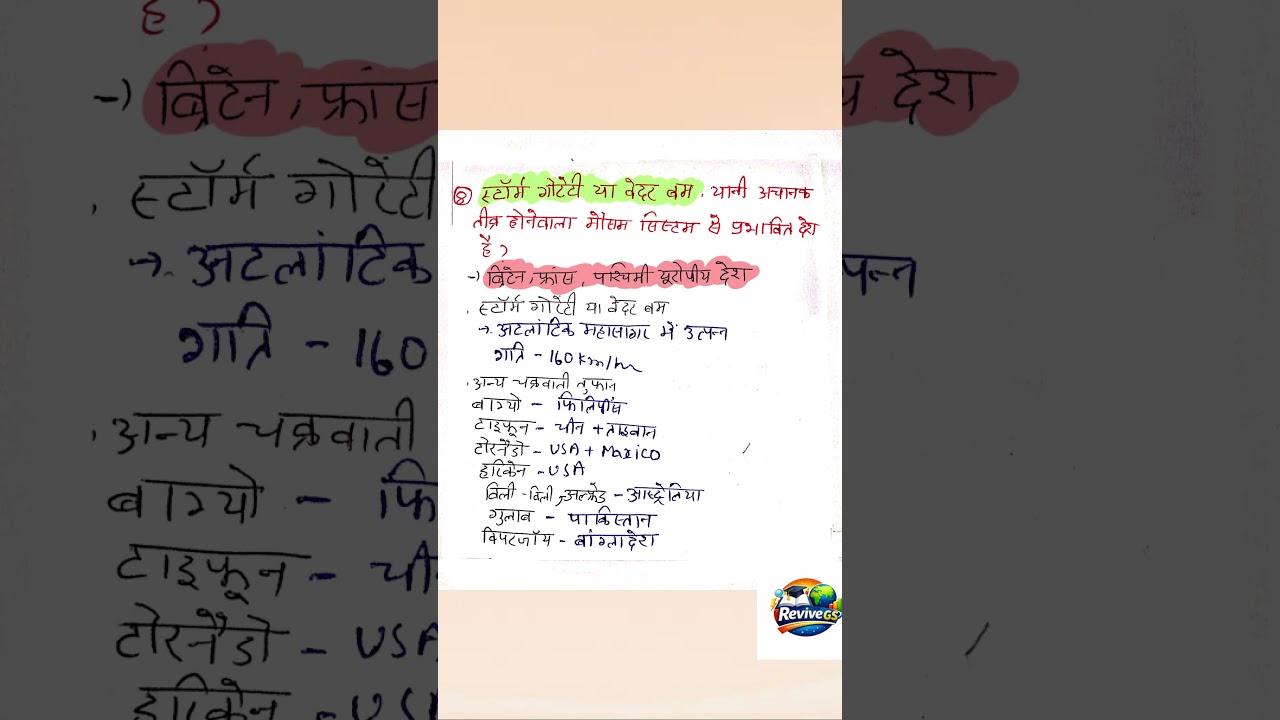 ⑧ स्टॉर्म गोरेटी या वेदर बम, यानी अचानक
तीव्र होनेवाला मौसम सिस्टम से प्रभावित देश
है?
→ ब्रिटेन, फ्रांस, पश्चिमी यूरोपीय देश
. स्टॉर्म गोरेटी या वेदर बम
→ अटलांटिक महासागर में उत्पन्न
गति - 160 Km/h
. अन्य चक्रवाती तुफान
बाग्यो - फिलिपींस
टाइफून - चीन + ताइवान
टोरनैडो - USA + Maxico
हरिकेन - USA
विली-विली, अल्फ्रेड - आस्ट्रेलिया
गुलाब - पाकिस्तान
बिपरजॉय - बांग्लादेश
Revive GS